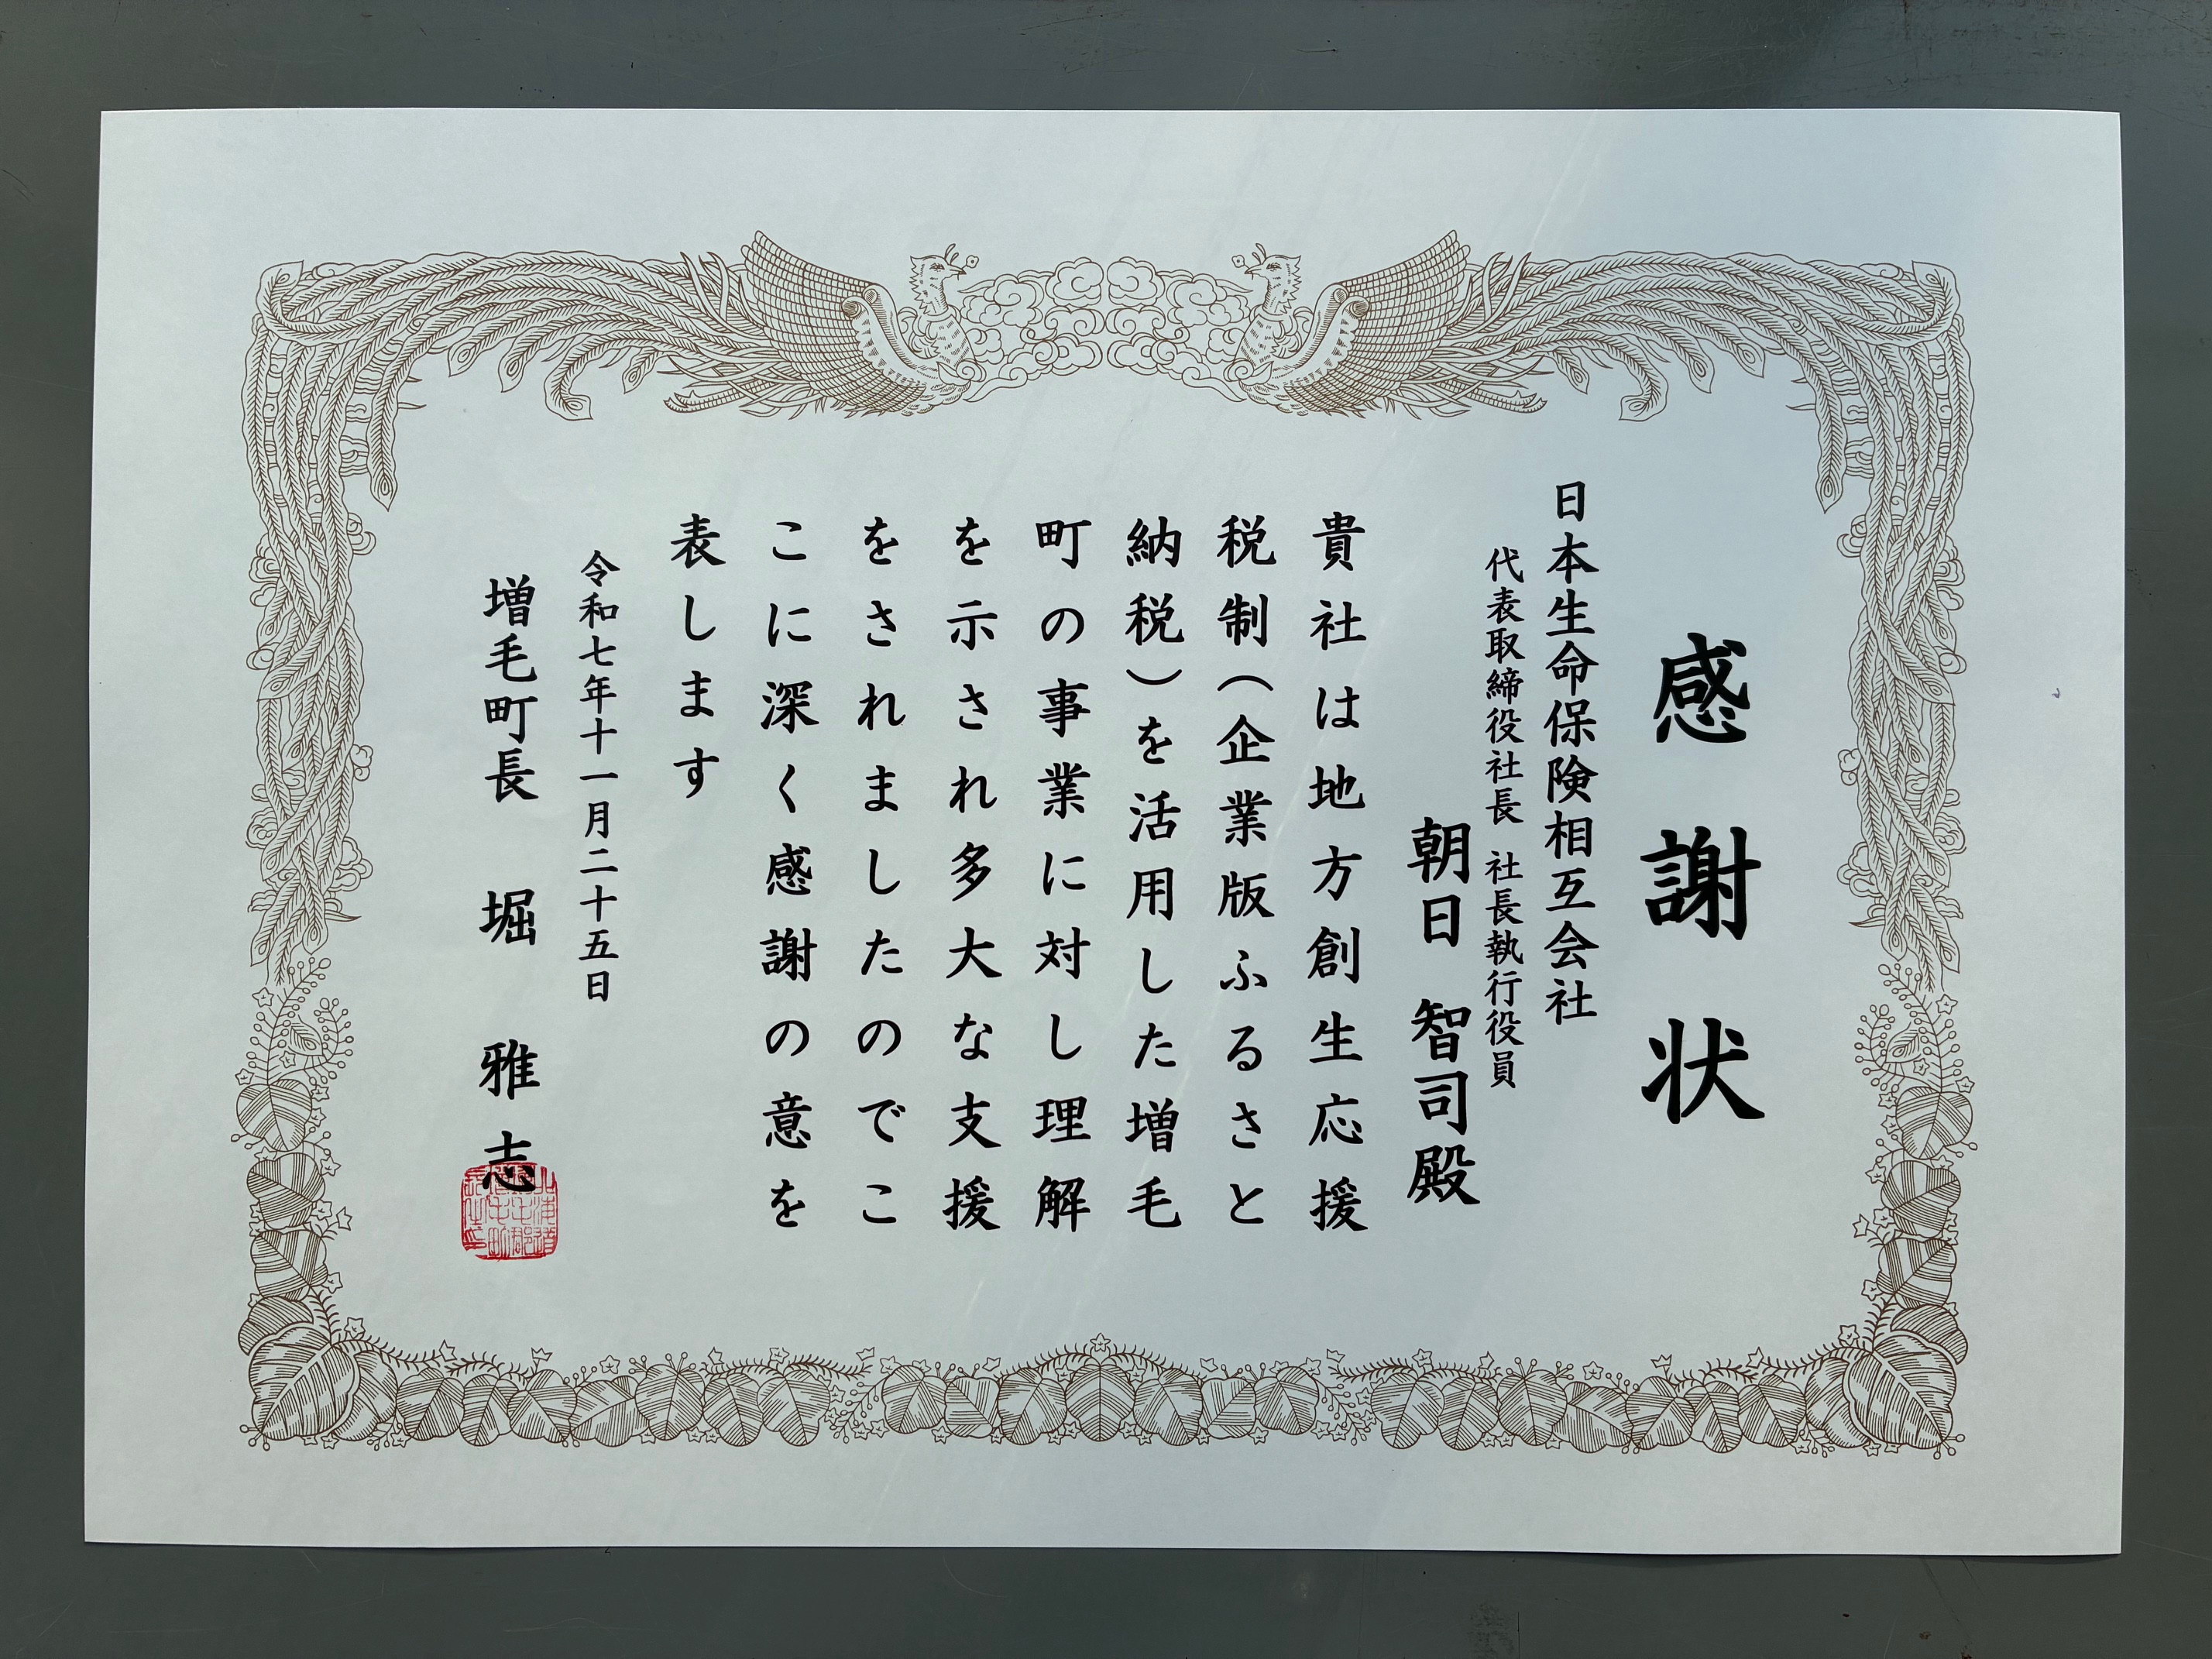 感謝状
日本生命保険相互会社
代表取締役社長 社長執行役員
朝日 智司殿
貴社は地方創生応援
税制(企業版ふるさと
納税)を活用した増毛
町の事業に対し理解
を示され多大な支援
をされましたのでこ
こに深く感謝の意を
表します
令和七年十一月二十五日
増毛町長 堀 雅志